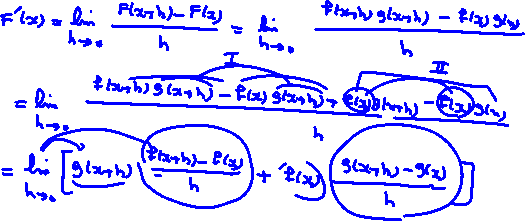 F'(x) = lim h→0 F(x+h) - F(x) / h = lim h→0 f(x+h) g(x+h) - f(x) g(x) / h
I II
= lim h→0 f(x+h) g(x+h) - f(x) g(x+h) + f(x) g(x+h) - f(x) g(x) / h
= lim h→0 [ g(x+h) f(x+h) - f(x) / h + f(x) g(x+h) - g(x) / h ]